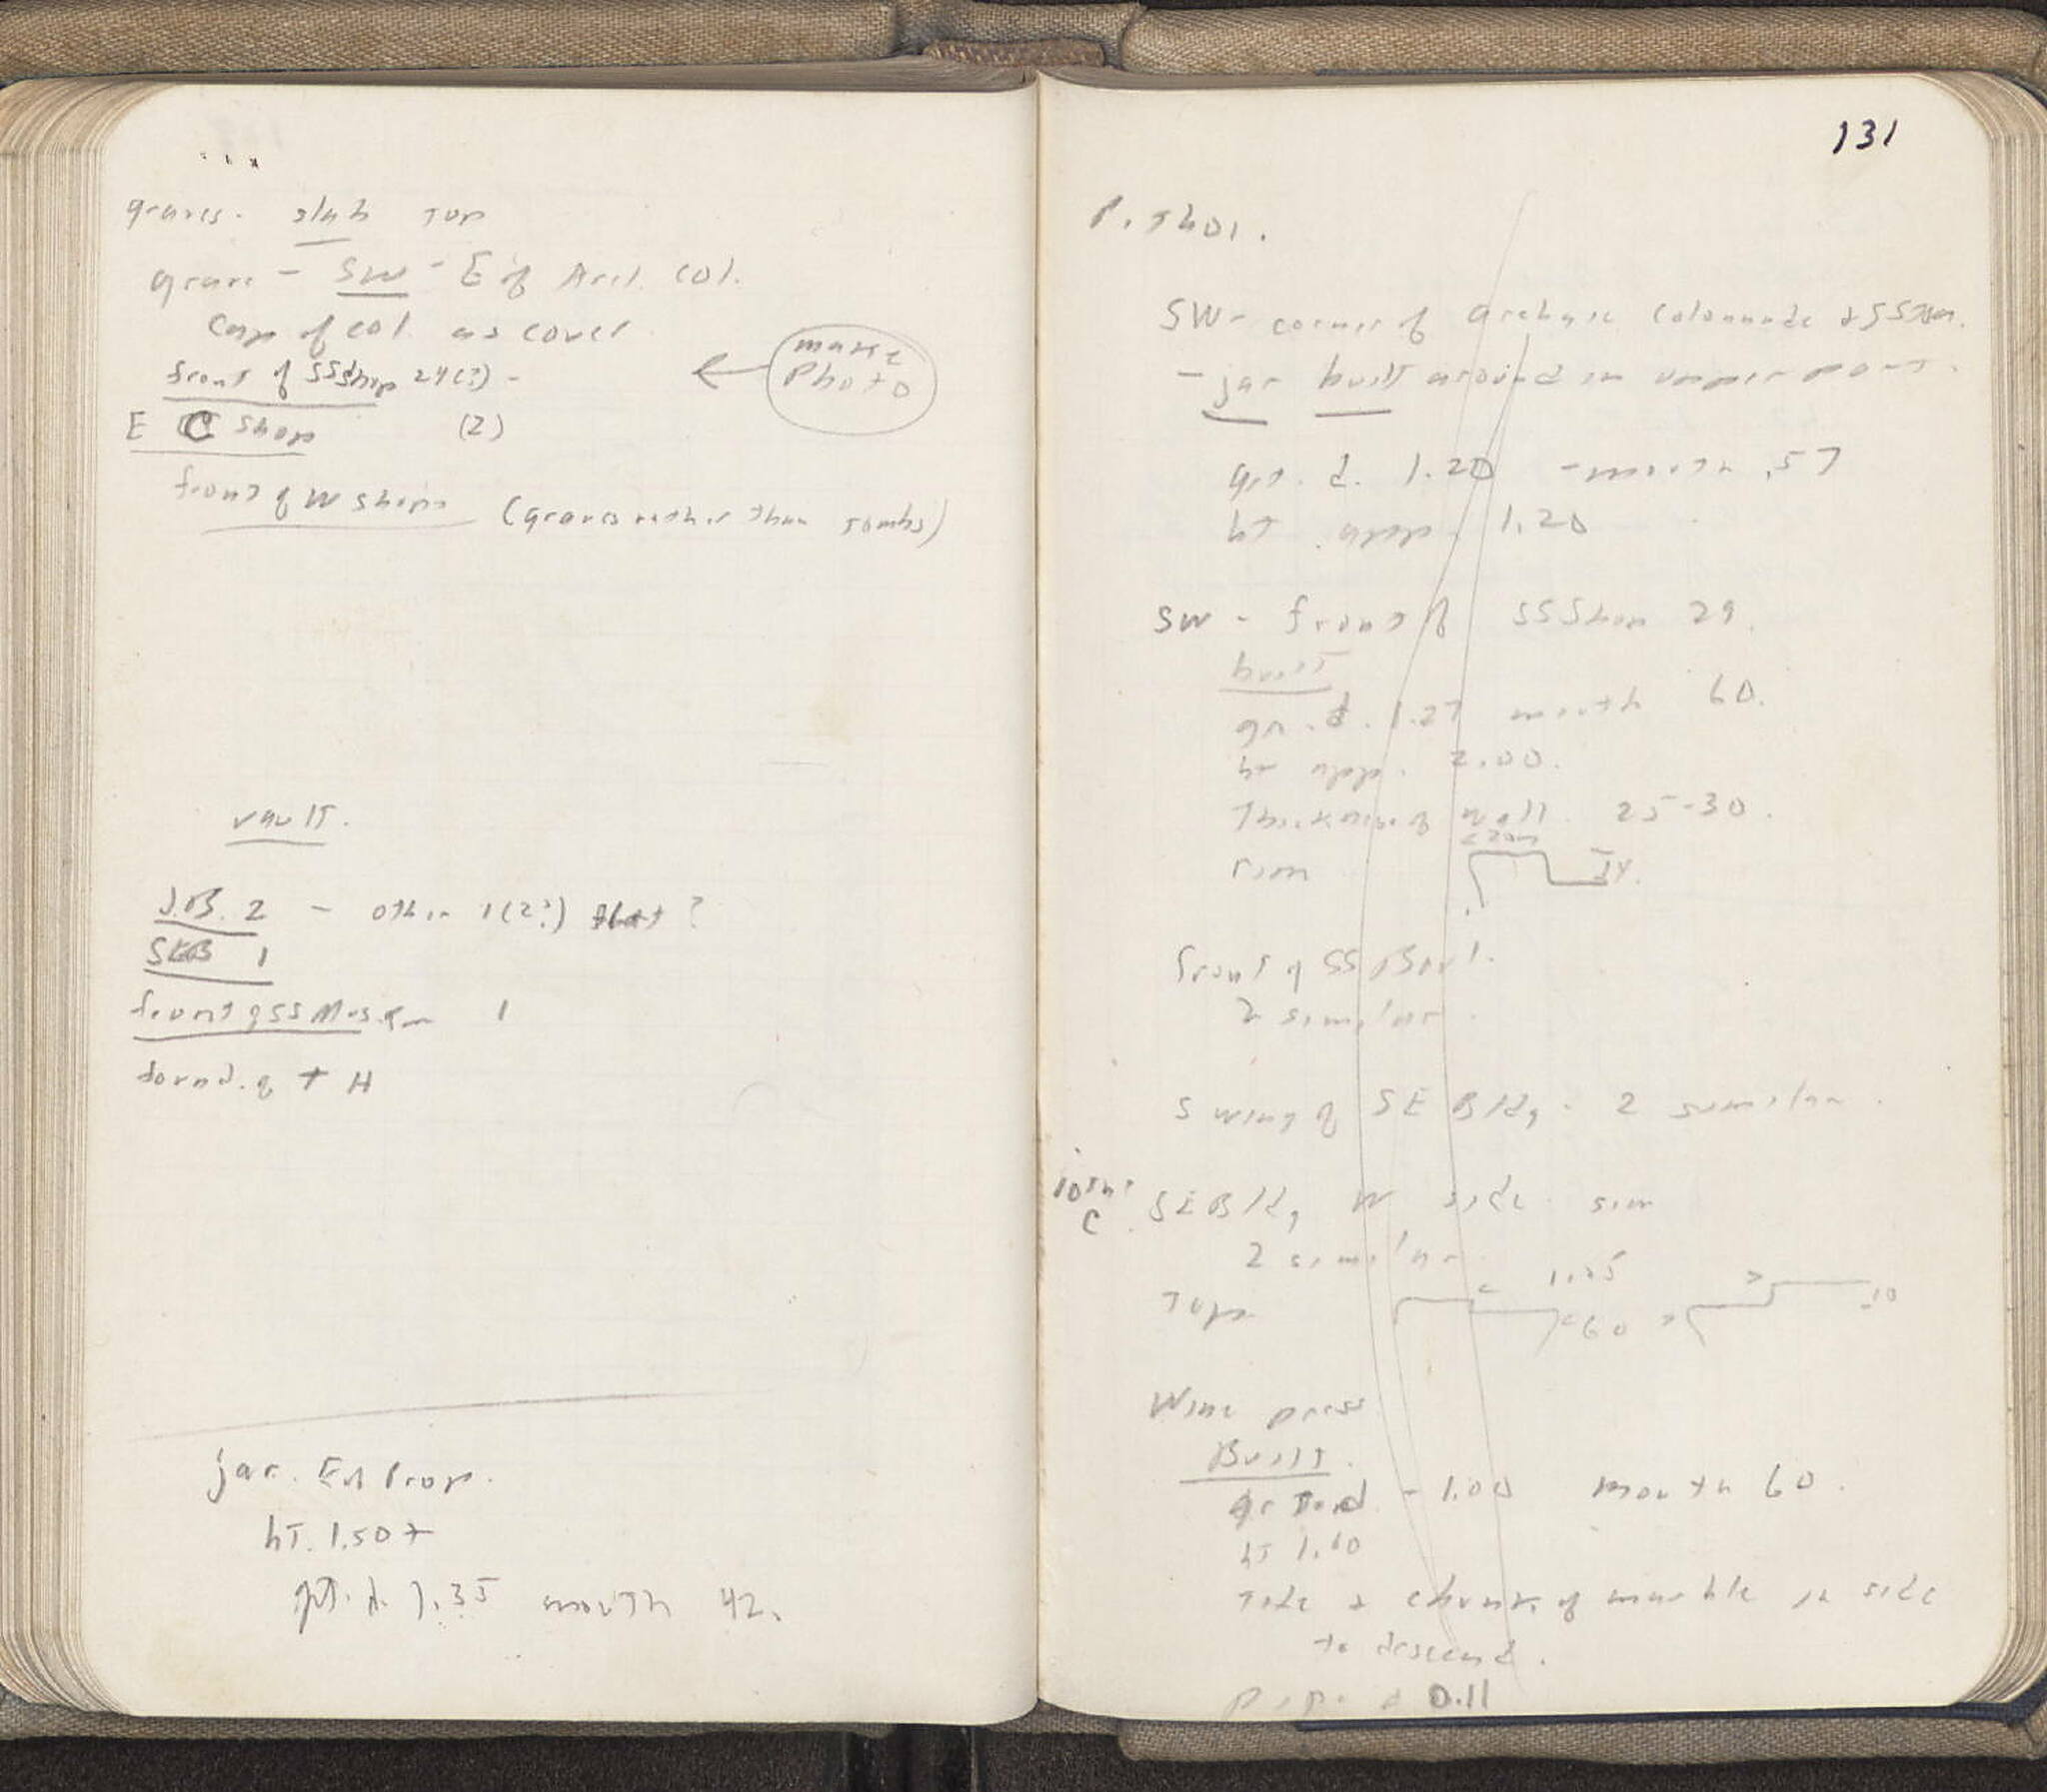 graves. slab top
grave - SW - E of Arch. Col.
Cap of col. as cover.
make
Photo
front of SSShop 24(?) -
E C Shop (2)
front of W Shops (graves rather than tombs)
vault.
J.B. 2 - other 1(2?) that?
SEB 1
front of SS 1
found. of + H
jar. E of Prop.
ht. 1.50+
gt. d. 1.35 mouth 42.
131
Pithoi.
SW - corner of Archaic Colonnade &
- jar built around in upper part.
grt. d. 1.20 - mouth .57
ht. app. 1.20
SW - front of SSShop 29.
built
gr. d. 1.27 mouth 60.
ht app. 2.00.
Thickness of wall 25-30.
rim
front of SS
2 similar.
S wing of SE Bldg - 2 similar.
10th?
C.
SE Bldg W side sim
2 similar.
Tops 1.25
60 .10
Wine press
Built.
gr d - 1.00 mouth 60.
ht 1.60
Tile & chunk of marble in side
to descend.
0.11